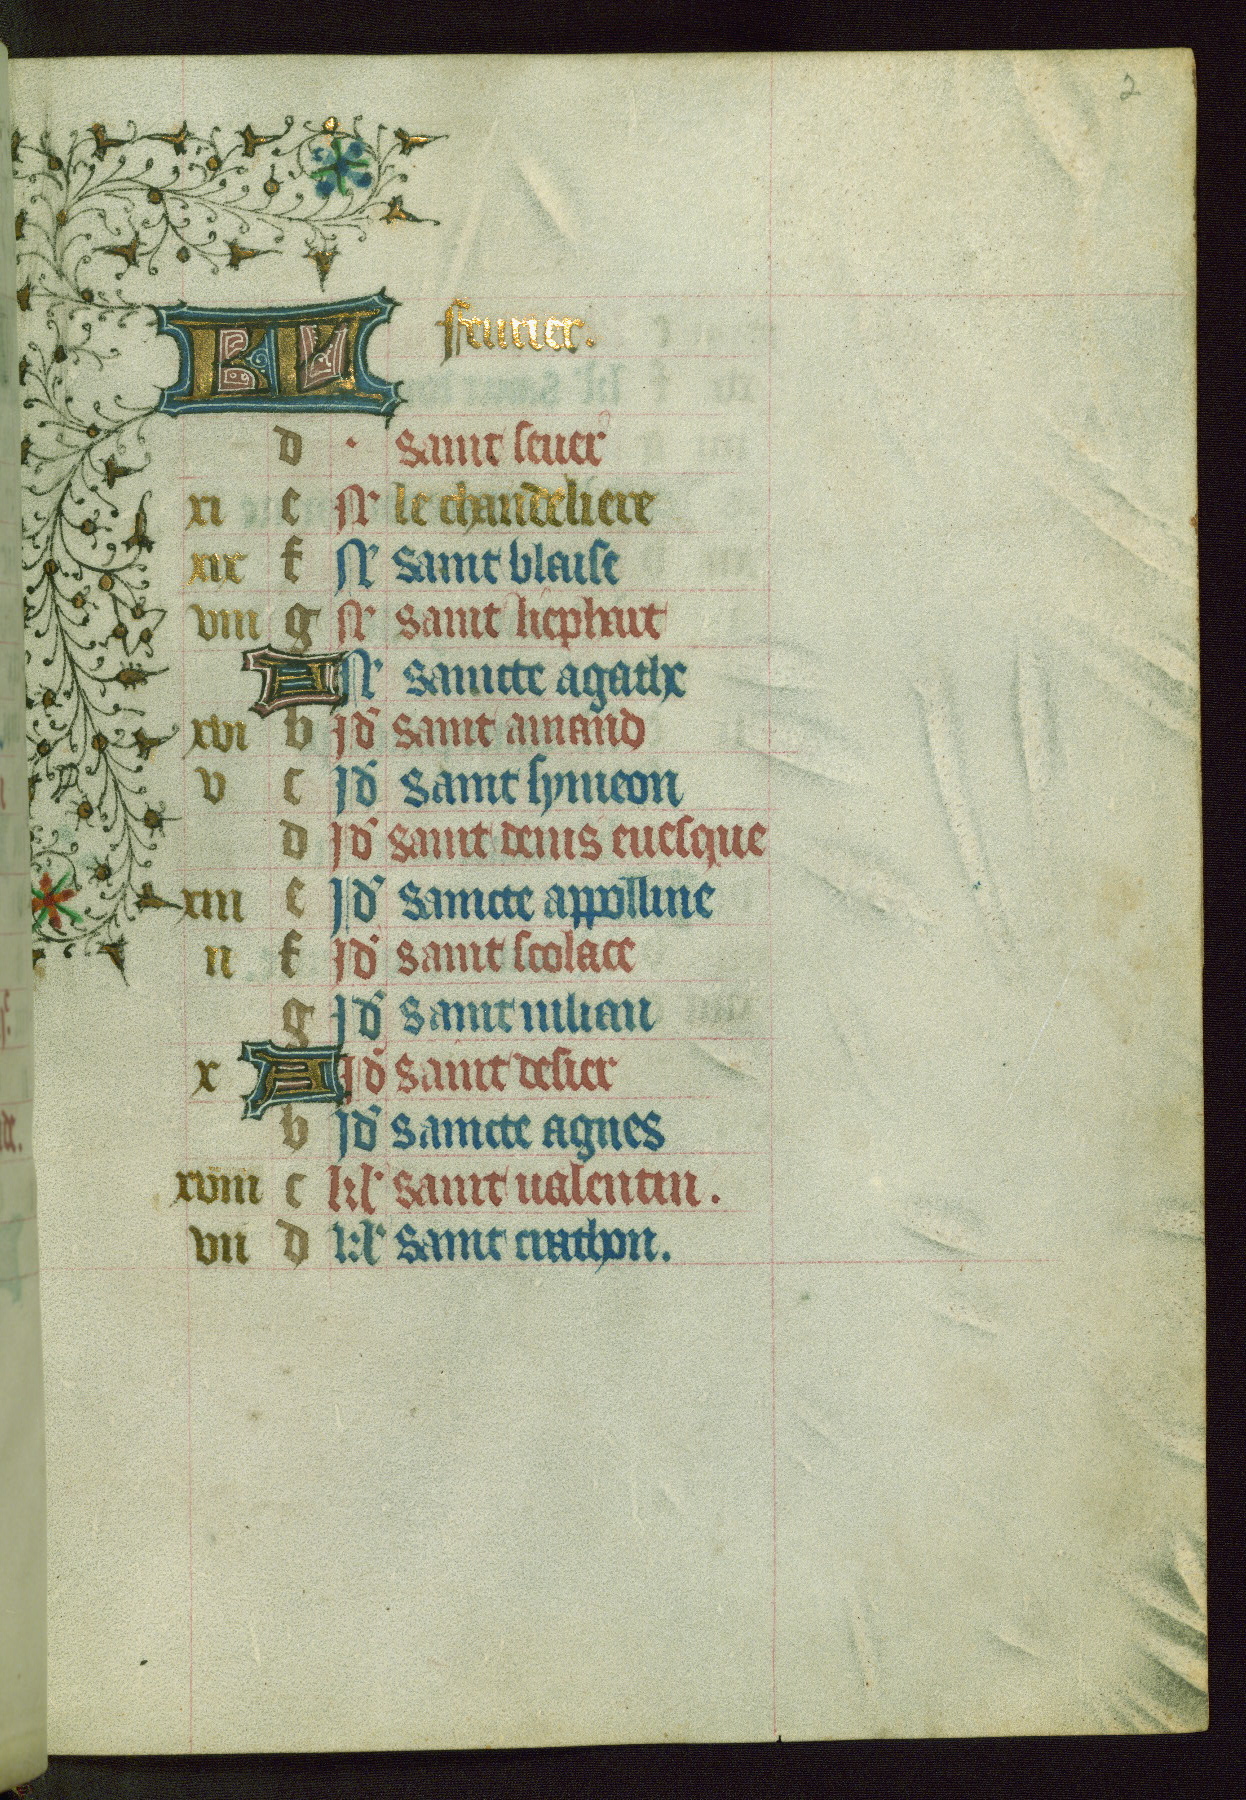 2
KL feurier.
d · saint seuer
xi e N̄ le chandeliere
xix f N̄ saint blaise
viii g N̄ saint liephart
A N̄ saincte agathe
xvi b Id' saint amand
v c Id' saint symeon
d Id' saint denis euesque
xiii e Id' saincte appolline
ii f Id' saint scolace
g Id' saint iulian
x A Id' saint desier
b Id' saincte agnes
xviii c kl' saint ualentin.
vii d kl' saint crathon.